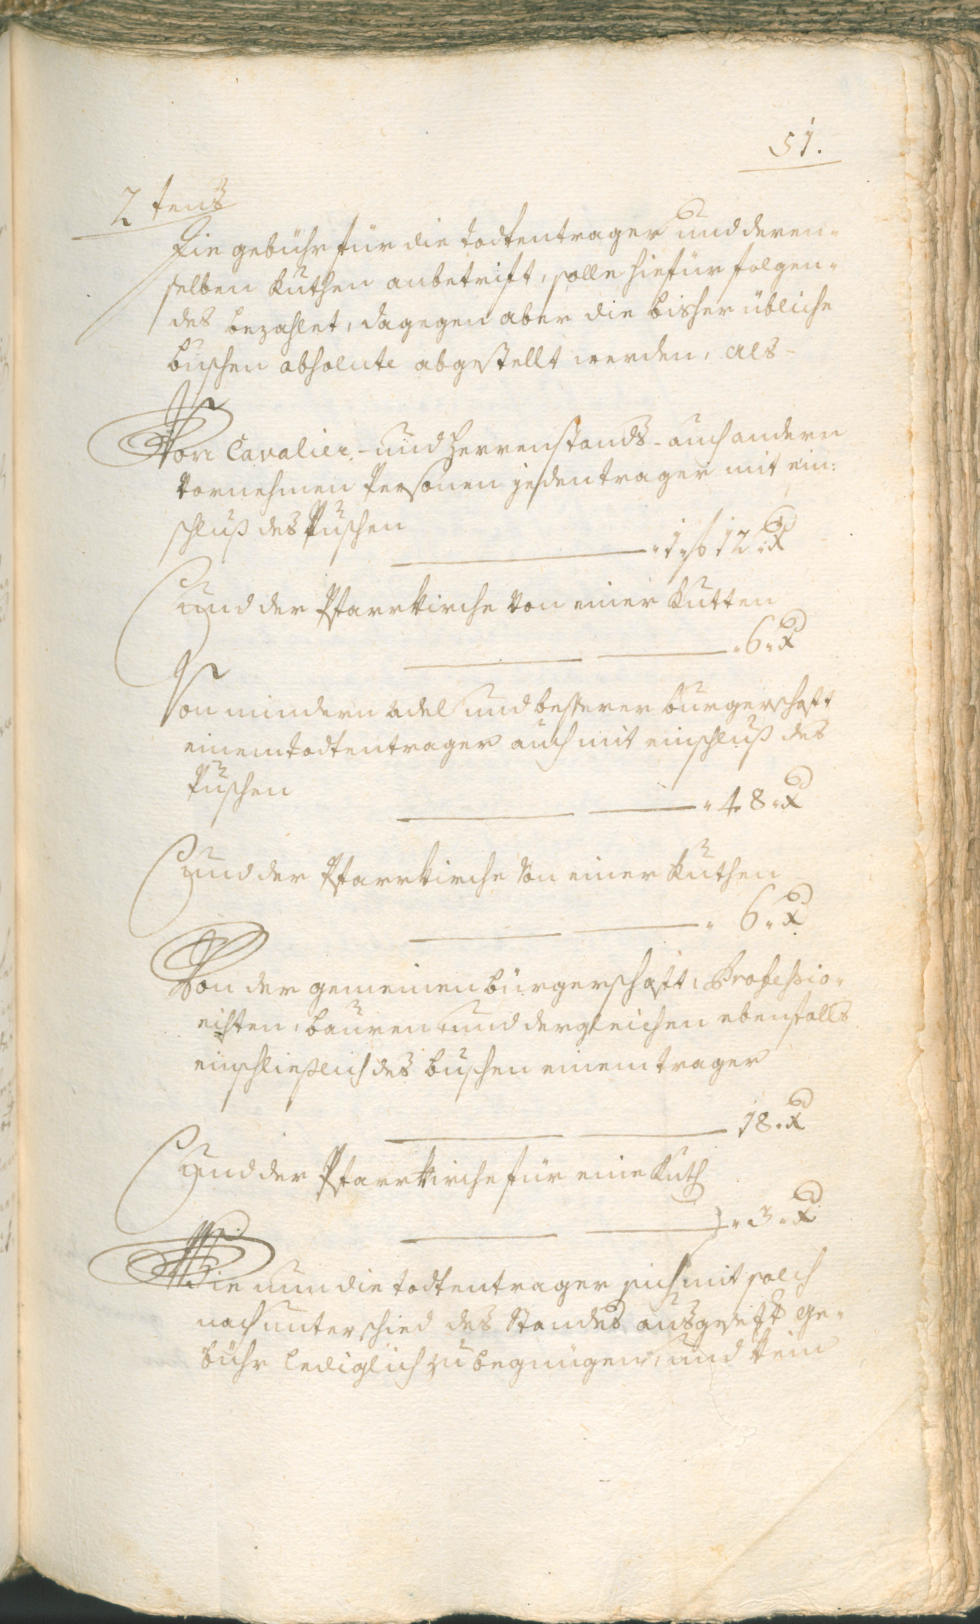 51.
2tens
Die gebühr für die todtentrager und deren-
selben Kuthen anbetrift, solle hiefür folgen-
des bezahlet, dagegen aber die bisher übliche
buschen absolute abgestellt werden, als-
Von Cavalier- und Herrenstands- auch andern
vornehmen Personen jeden trager mit ein:
schluß des Puschen
1 f 12 x
und der Pfarrkirche von einer Kutten
6 x
Von mindern adel und besserer burgerschaft
einem todtentrager auch mit einschluß des
Puschen
48 x
und der Pfarrkirche von einer Kuthen
6 x
Von der gemeinen bürgerschaft, Professio-
nisten, bauren und dergleichen ebenfalls
einschließlich des buschen einem trager
18 x
und der Pfarrkirche für eine Kuth
3 x
Wie nun die todtentrager sich mit solch
nach unterschied des Standes ausgesezt ge-
bühr lediglich zu begnügen, und kein